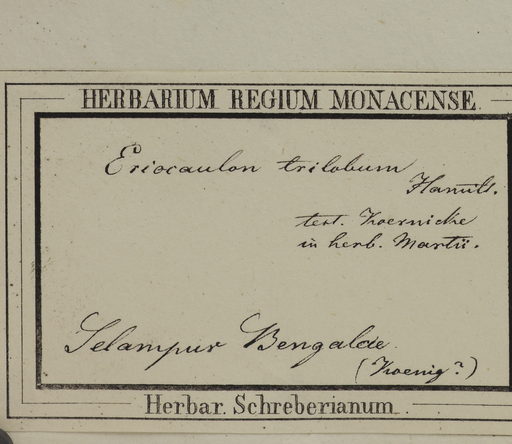 HERBARIUM REGIUM MONACENSE
Eriocaulon trilobum
Hamilt.
test. Koernicke
in herb. Martii.
Selampur Bengalae
(Koenig?)
Herbar. Schreberianum